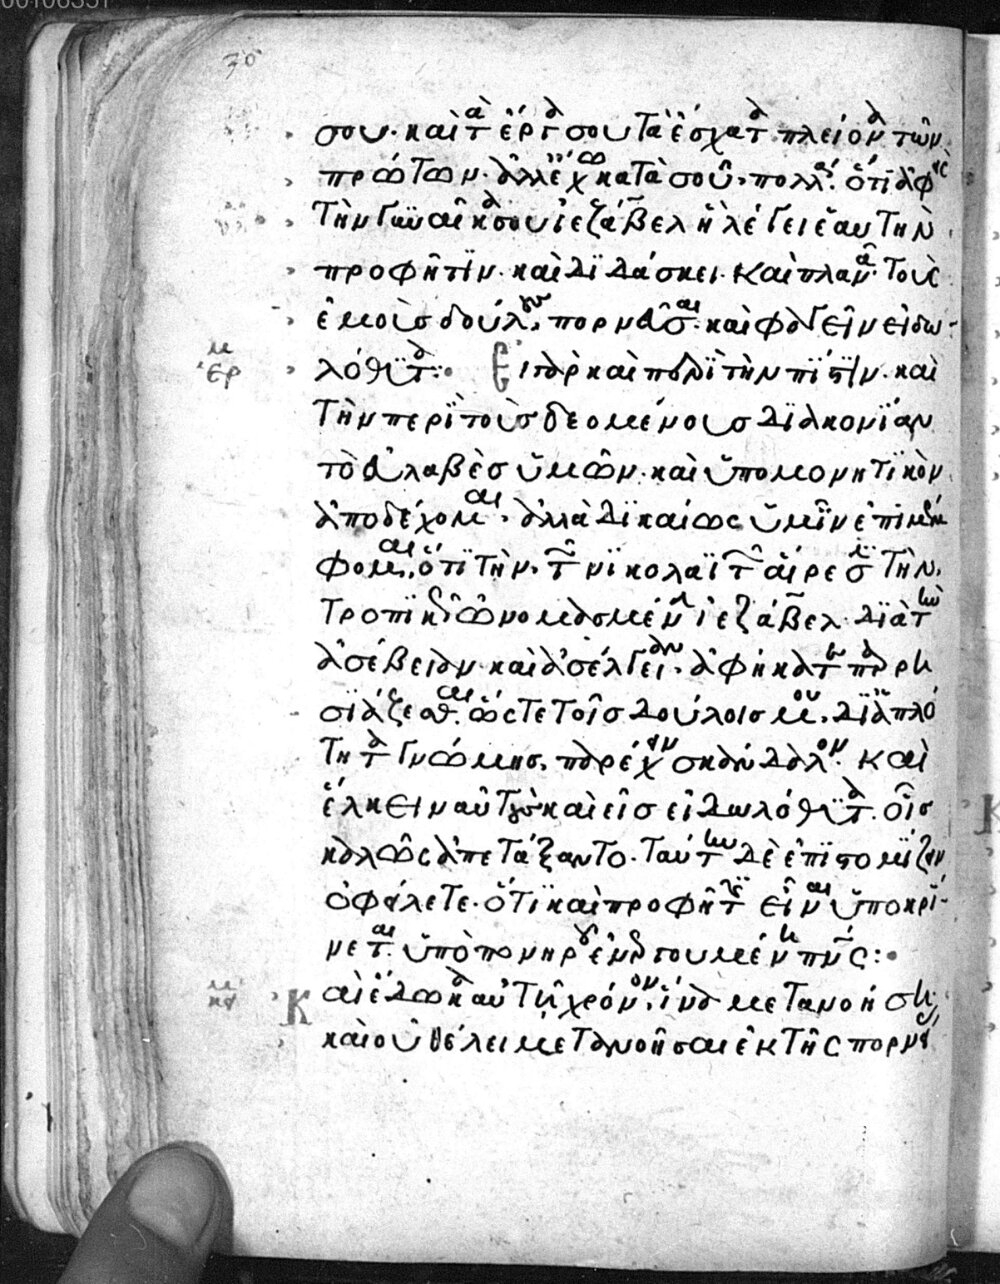 00106351
70
σου· καὶ τὰ ἔργα σου τὰ ἔσχατα πλείονα τῶν
πρώτων· ἀλλ' ἔχω κατὰ σοῦ· πολλά· ὅτι ἀφεὶς
τὴν γυναῖκα σου ἰεζάβελ ἣ λέγει ἑαυτὴν
προφῆτιν· καὶ διδάσκει· καὶ πλανᾶ· τοὺς
ἐμοὺς δούλους, πορνεῦσαι· καὶ φαγεῖν εἰδω-
λόθυτα:· Εἰ γὰρ καὶ πρὸς τὴν πίστιν· καὶ
ἑρμ
τὴν περὶ τοὺς δεομένους διακονίαν
τὸ εὐλαβὲς ὑμῶν· καὶ ὑπομονητικὸν
ἀποδέχομαι· ἀλλὰ δικαίως ὑμῖν ἐπιμέμ
φομαι, ὅτι τὴν· τῶν νικολαϊτῶν αἵρεσιν τὴν,
τροπικῶς ὠνομασμένην ἰεζάβελ· διὰ τὴν
ἀσέβειαν· καὶ ἀσέλγειαν· ἀφήκατε παρρη
σιάζεσθαι· ὥστε τοῖς δούλοις μου, δι' ἁπλό
τητα γνώμης, παρέχειν σκάνδαλον· καὶ
ἕλκειν αὐτοὺς καὶ εἰς εἰδωλόθυτα· οἷς
καλῶς ἀπετάξαντο· ταύτην δὲ ἐπιστομίζειν
ὀφείλετε· ὅτι καὶ προφῆτις εἶναι ὑποκρί-
νεται· ὑπὸ πονηροῦ ἐνεργουμένη πνς:·
κει
Καὶ ἔδωκα αὐτῆ χρόνον, ἵνα μετανοήση·
καὶ οὐ θέλει μετανοῆσαι ἐκ τῆς πορνεί